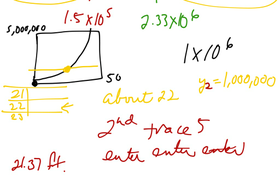 1.5 x 10⁵
2.33 x 10⁶
5,000,000
1 x 10⁶
50
y₂ = 1,000,000
21
22
23
about 22
2nd trace 5
enter enter enter
21.37 ft.